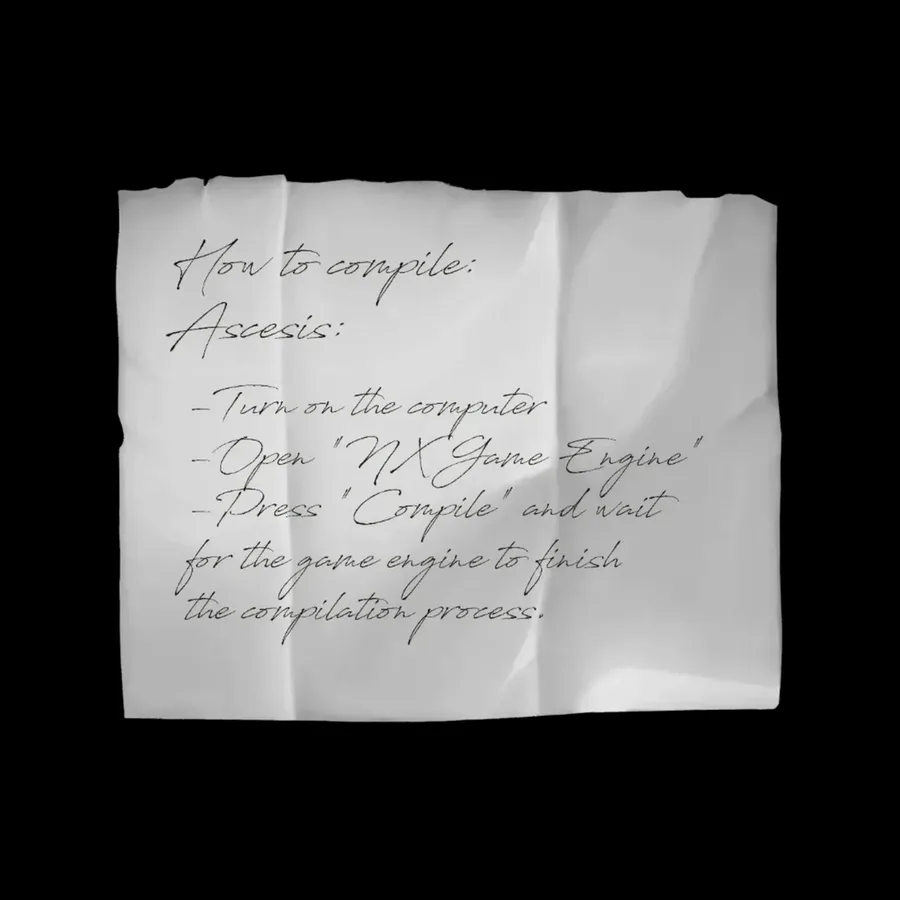 How to compile:
Ascesis:
-Turn on the computer
-Open "NX Game Engine"
-Press "Compile" and wait
for the game engine to finish
the compilation process.